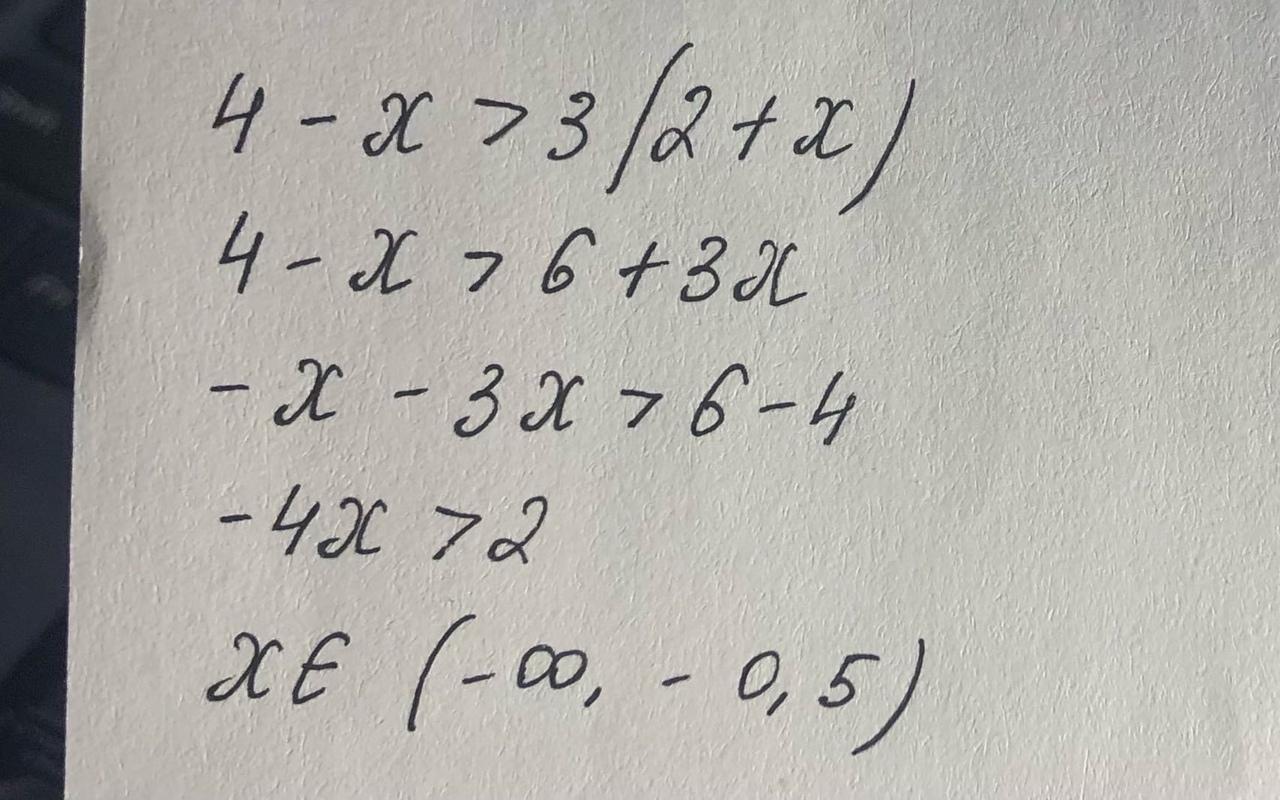 4 - x > 3(2 + x)
4 - x > 6 + 3x
- x - 3x > 6 - 4
- 4x > 2
x ∈ (-∞, - 0,5)